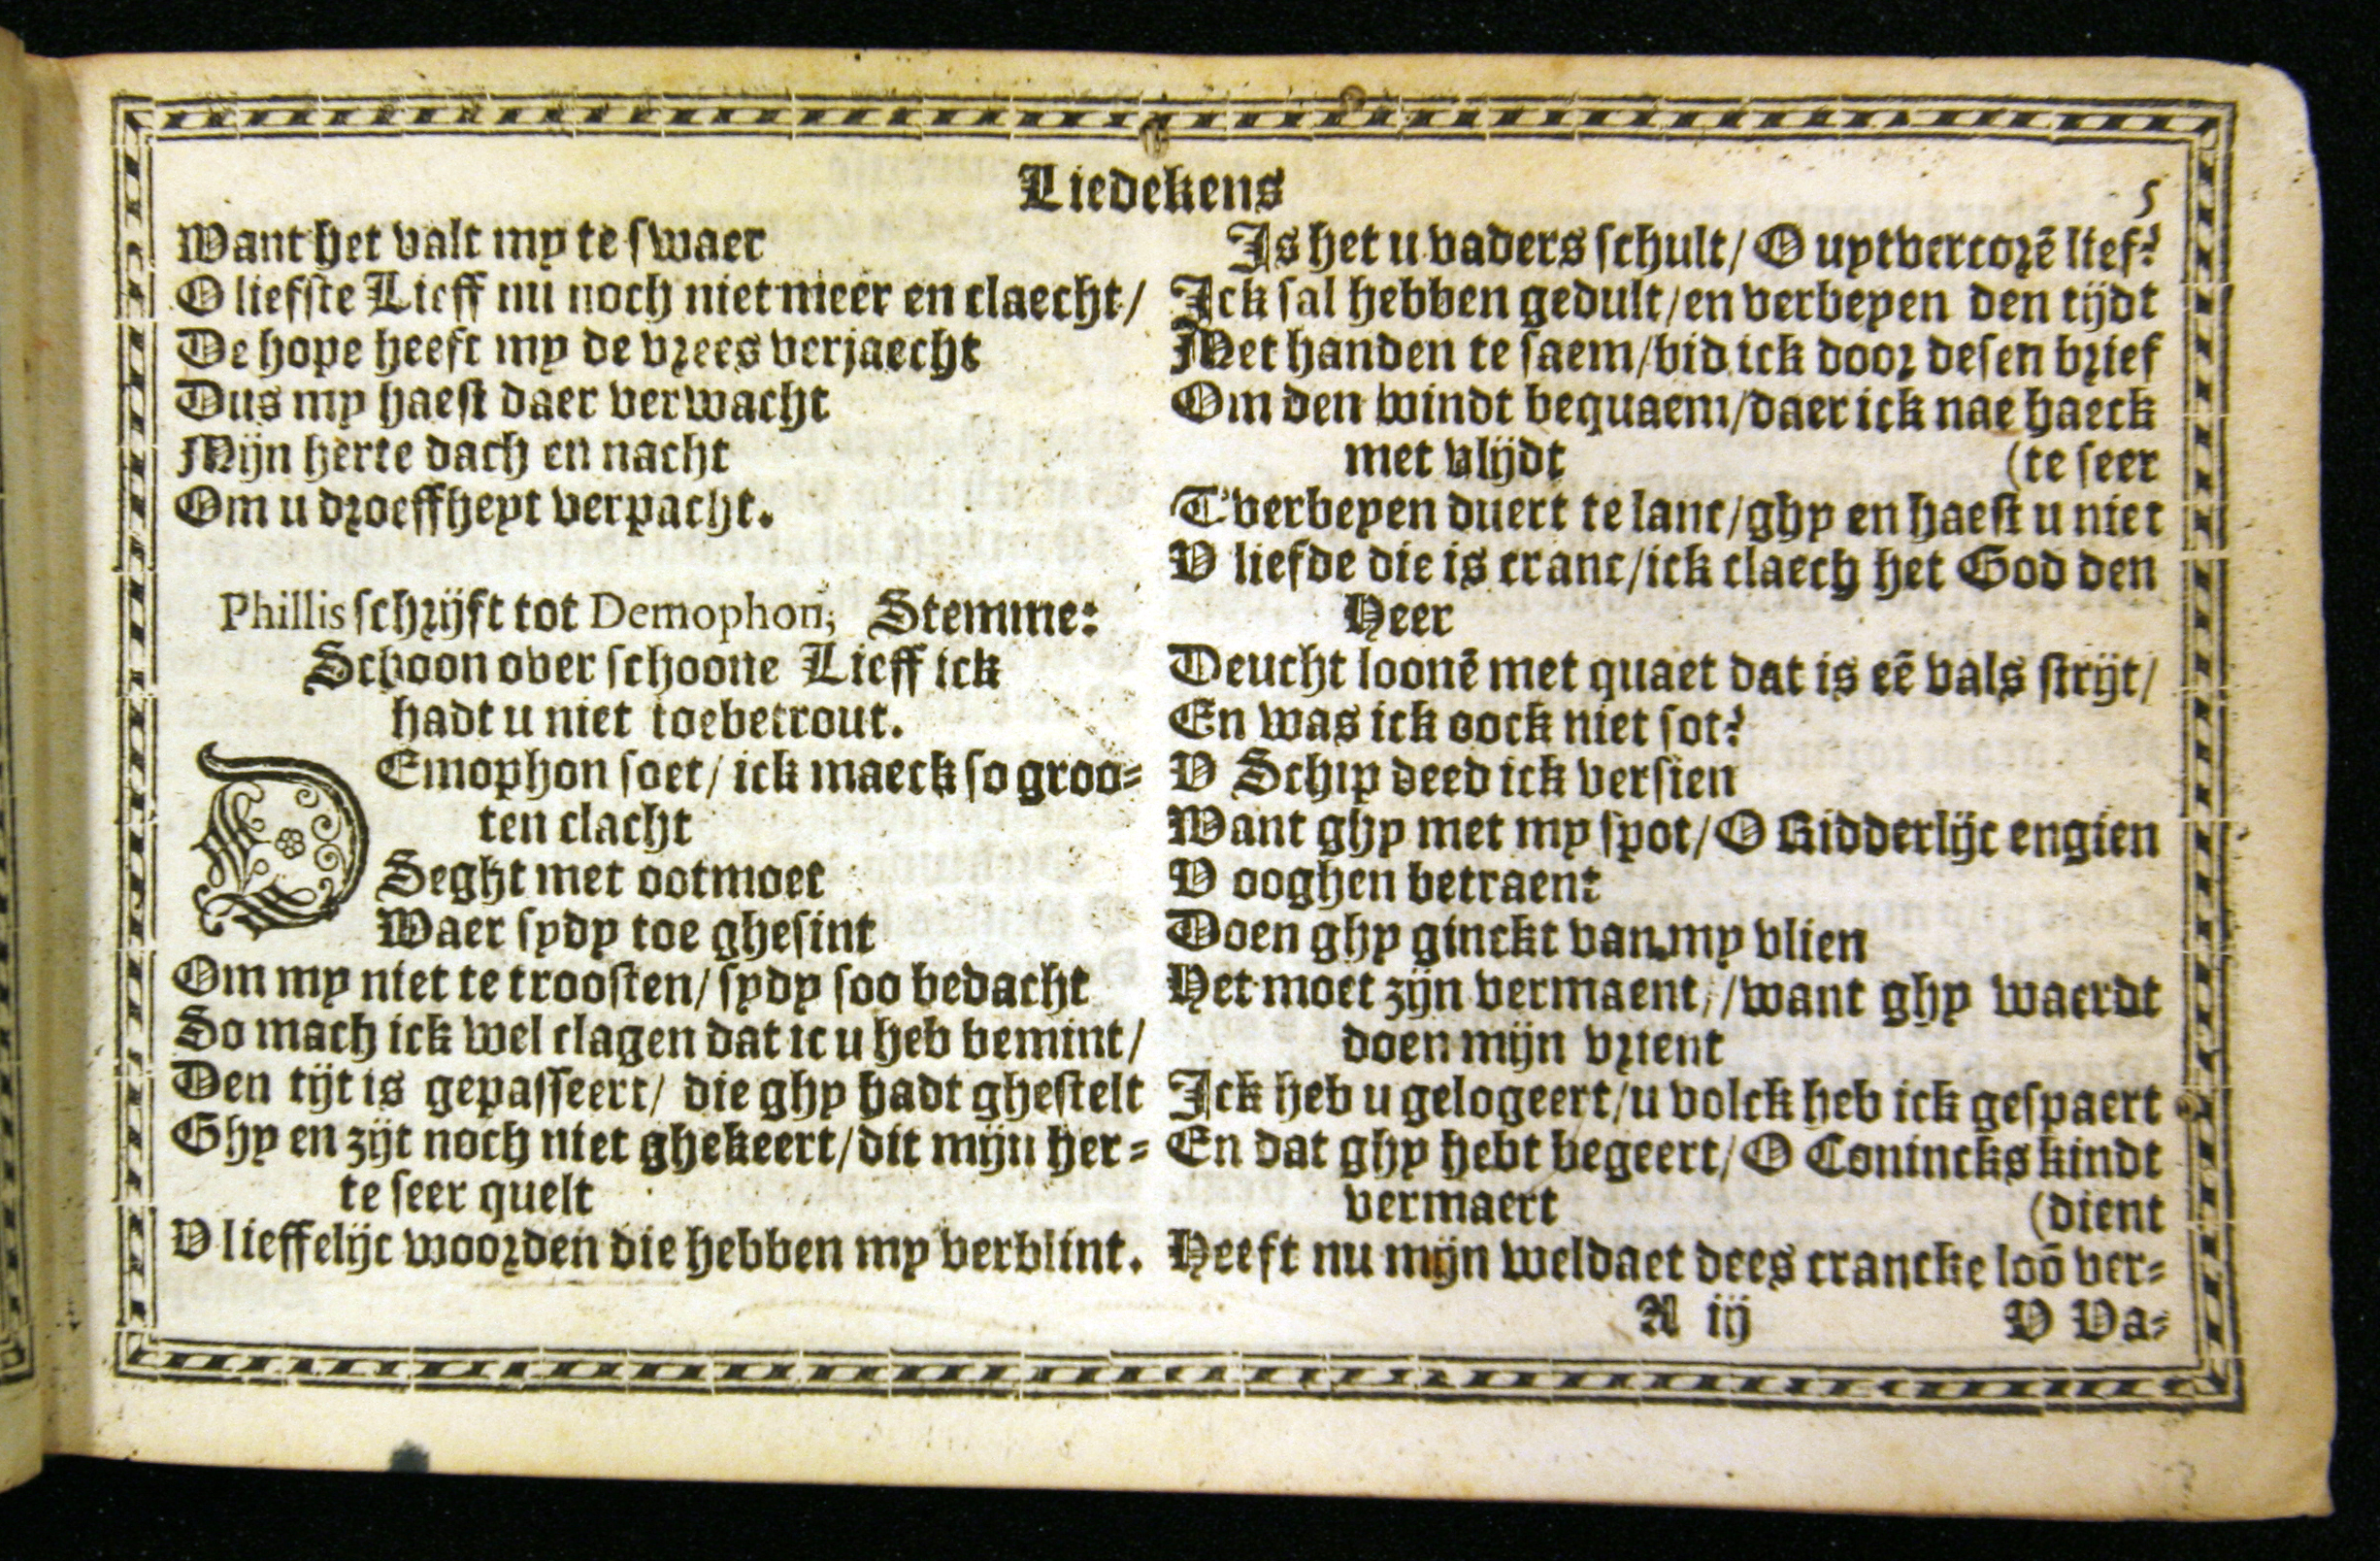 Liedekens
5
Want het valt my te swaer
O liefste Lieff nu noch niet meer en claecht/
De hope heeft my de vrees verjaecht
Dus my haest daer verwacht
Mijn herte dach en nacht
Om u droeffheyt verpacht.
Phillis schrijft tot Demophon, Stemme:
Schoon over schoone Lieff ick
hadt u niet toebetrout.
DEmophon soet/ ick maeck so groo=
ten clacht
Seght met ootmoet
Waer sydy toe ghesint
Om my niet te troosten/ sydy soo bedacht
So mach ick wel clagen dat ic u heb bemint/
Den tijt is gepasseert/ die ghy hadt ghestelt
Ghy en zijt noch niet ghekeert/dit mijn her=
te seer quelt
V lieffelijc woorden die hebben my verblint.
Is het u vaders schult/ O uytvercorē lief?
Ick sal hebben gedult/en verbeyen den tijdt
Met handen te saem/bid ick door desen brief
Om den windt bequaem/daer ick nae haeck
met vlijdt (te seer
T'verbeyen duert te lanc/ghy en haest u niet
V liefde die is cranc/ick claech het God den
Heer
Deucht loonē met quaet dat is eē vals strijt/
En was ick oock niet sot?
V Schip deed ick versien
Want ghy met my spot/O Ridderlijc engien
V ooghen betraent
Doen ghy ginckt van my vlien
Het moet zijn vermaent,/want ghy waerdt
doen mijn vrient
Ick heb u gelogeert/u volck heb ick gespaert
En dat ghy hebt begeert/O Conincks kindt
vermaert (dient
Heeft nu mijn weldaet dees crancke loō ver=
A iij V Va=